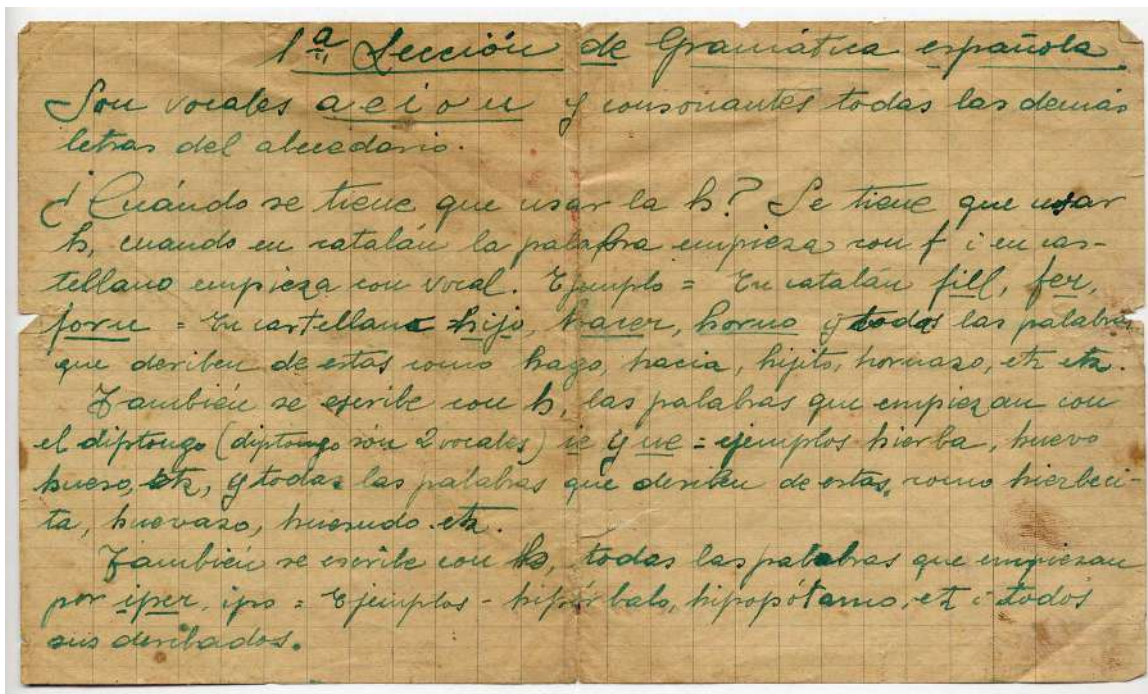 1ª Lección de Gramática española.
Son vocales a e i o u y consonantes todas las demás
letras del abecedario.
¿Cuándo se tiene que usar la h? Se tiene que usar
h, cuando en catalán la palabra empieza con f i en cas-
tellano empieza con vocal. Ejemplo = En catalán fill, fer,
forn = En castellano hijo, hacer, horno y todas las palabras
que deriben de estas como hago, hacia, hijito, hornazo, etz etz.
También se escribe con h, las palabras que empiezan con
el diptongo (diptongo són 2 vocales) ie y ue = ejemplos hierba, huevo
hueso, etz, y todas las palabras que deriben de estas, como hierbeci-
ta, huevazo, huesudo. etz.
También se escribe con h, todas las palabras que empiezan
por iper, ipo = Ejemplos - hipopótamo, etz i todos
sus deribados.